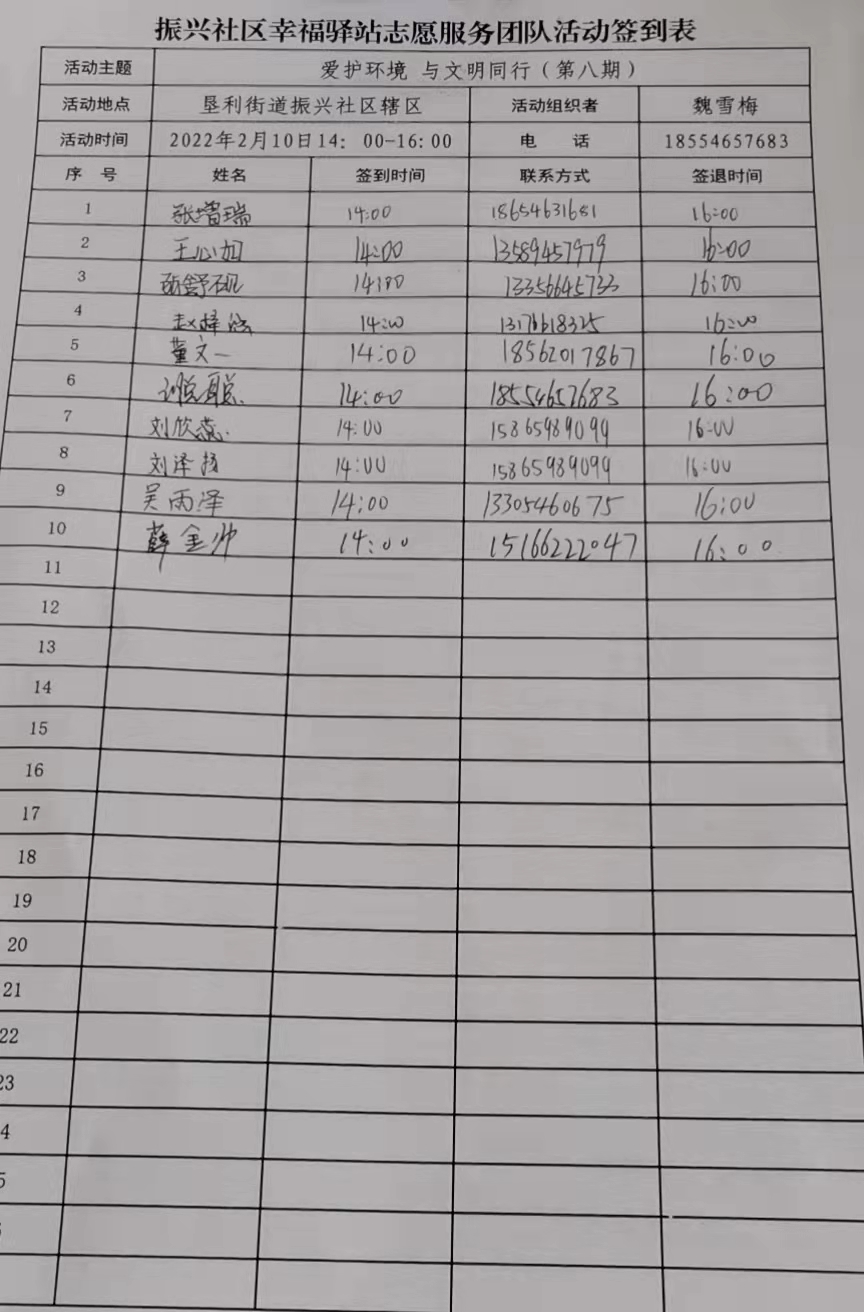 振兴社区幸福驿站志愿服务团队活动签到表
活动主题 爱护环境 与文明同行（第八期）
活动地点 垦利街道振兴社区辖区 活动组织者 魏雪梅
活动时间 2022年2月10日14：00-16:00 电 话 18554657683
序 号 姓名 签到时间 联系方式 签退时间
1 张增瑞 14:00 18654631681 16:00
2 王心如 14:00 13589457979 16:00
3 14:00 13356645733 16:00
4 赵 14:00 13176618325 16:00
5 董文一 14:00 18562017867 16:00
6 14:00 18554657683 16:00
7 刘欣燕 14:00 15865989099 16:00
8 刘泽扬 14:00 15865989099 16:00
9 吴雨泽 14:00 13305460675 16:00
10 薛金帅 14:00 15166222047 16:00
11
12
13
14
15
16
17
18
19
20
21
22
23
4
5